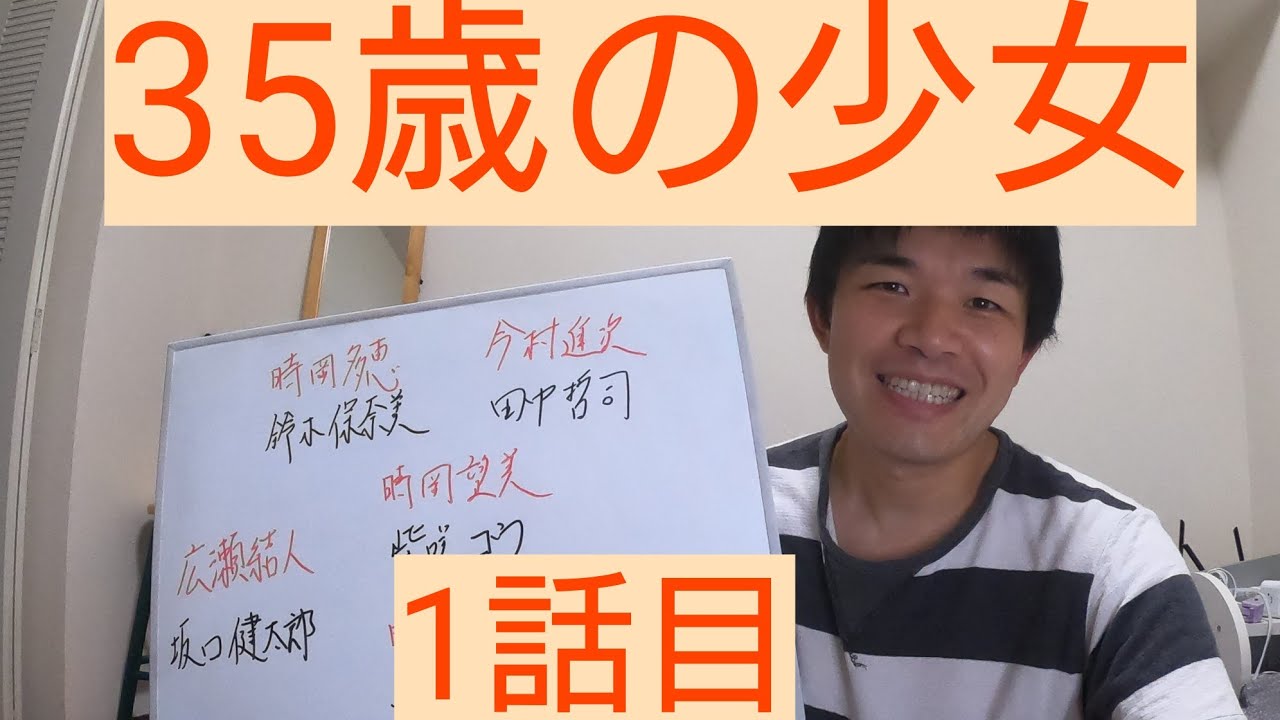 35歳の少女
時岡多恵
今村進次
鈴木保奈美
田中哲司
時岡望美
柴咲コウ
広瀬結人
坂口健太郎
1話目